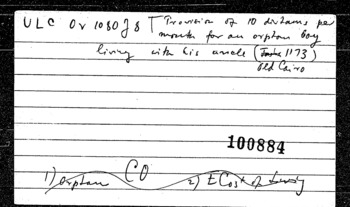 ULC Or 1080 J 8 Provision of 10 dirhams per
month for an orphan boy
living with his uncle ( 1173)
Old Cairo
100884
1) orphan CO 2) E Cost of Living